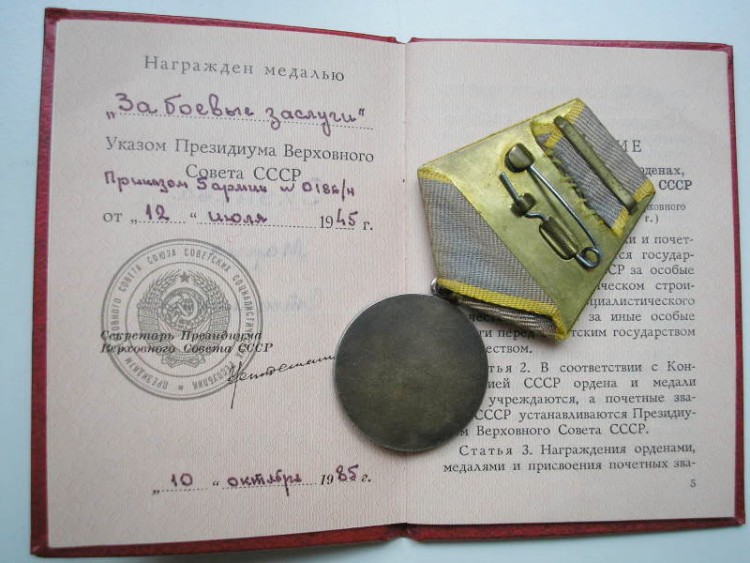 Награжден медалью
„За боевые заслуги"
Указом Президиума Верховного
Совета СССР
Приказом 5 армии N 0186/н
от „12" июля 1945 г.
Секретарь Президиума
Верховного Совета СССР
„10" октября 1985 г.
ИЕ
орденах,
СССР
ховного
г.)
и и почет-
тся государ-
СР за особые
ческом строи-
циалистического
за иные особые
ти перед тским государством
чеством.
тья 2. В соответствии с Кон-
цией СССР ордена и медали
учреждаются, а почетные зва-
СССР устанавливаются Президиу-
м Верховного Совета СССР.
Статья 3. Награждения орденами,
медалями и присвоения почетных зва-
5